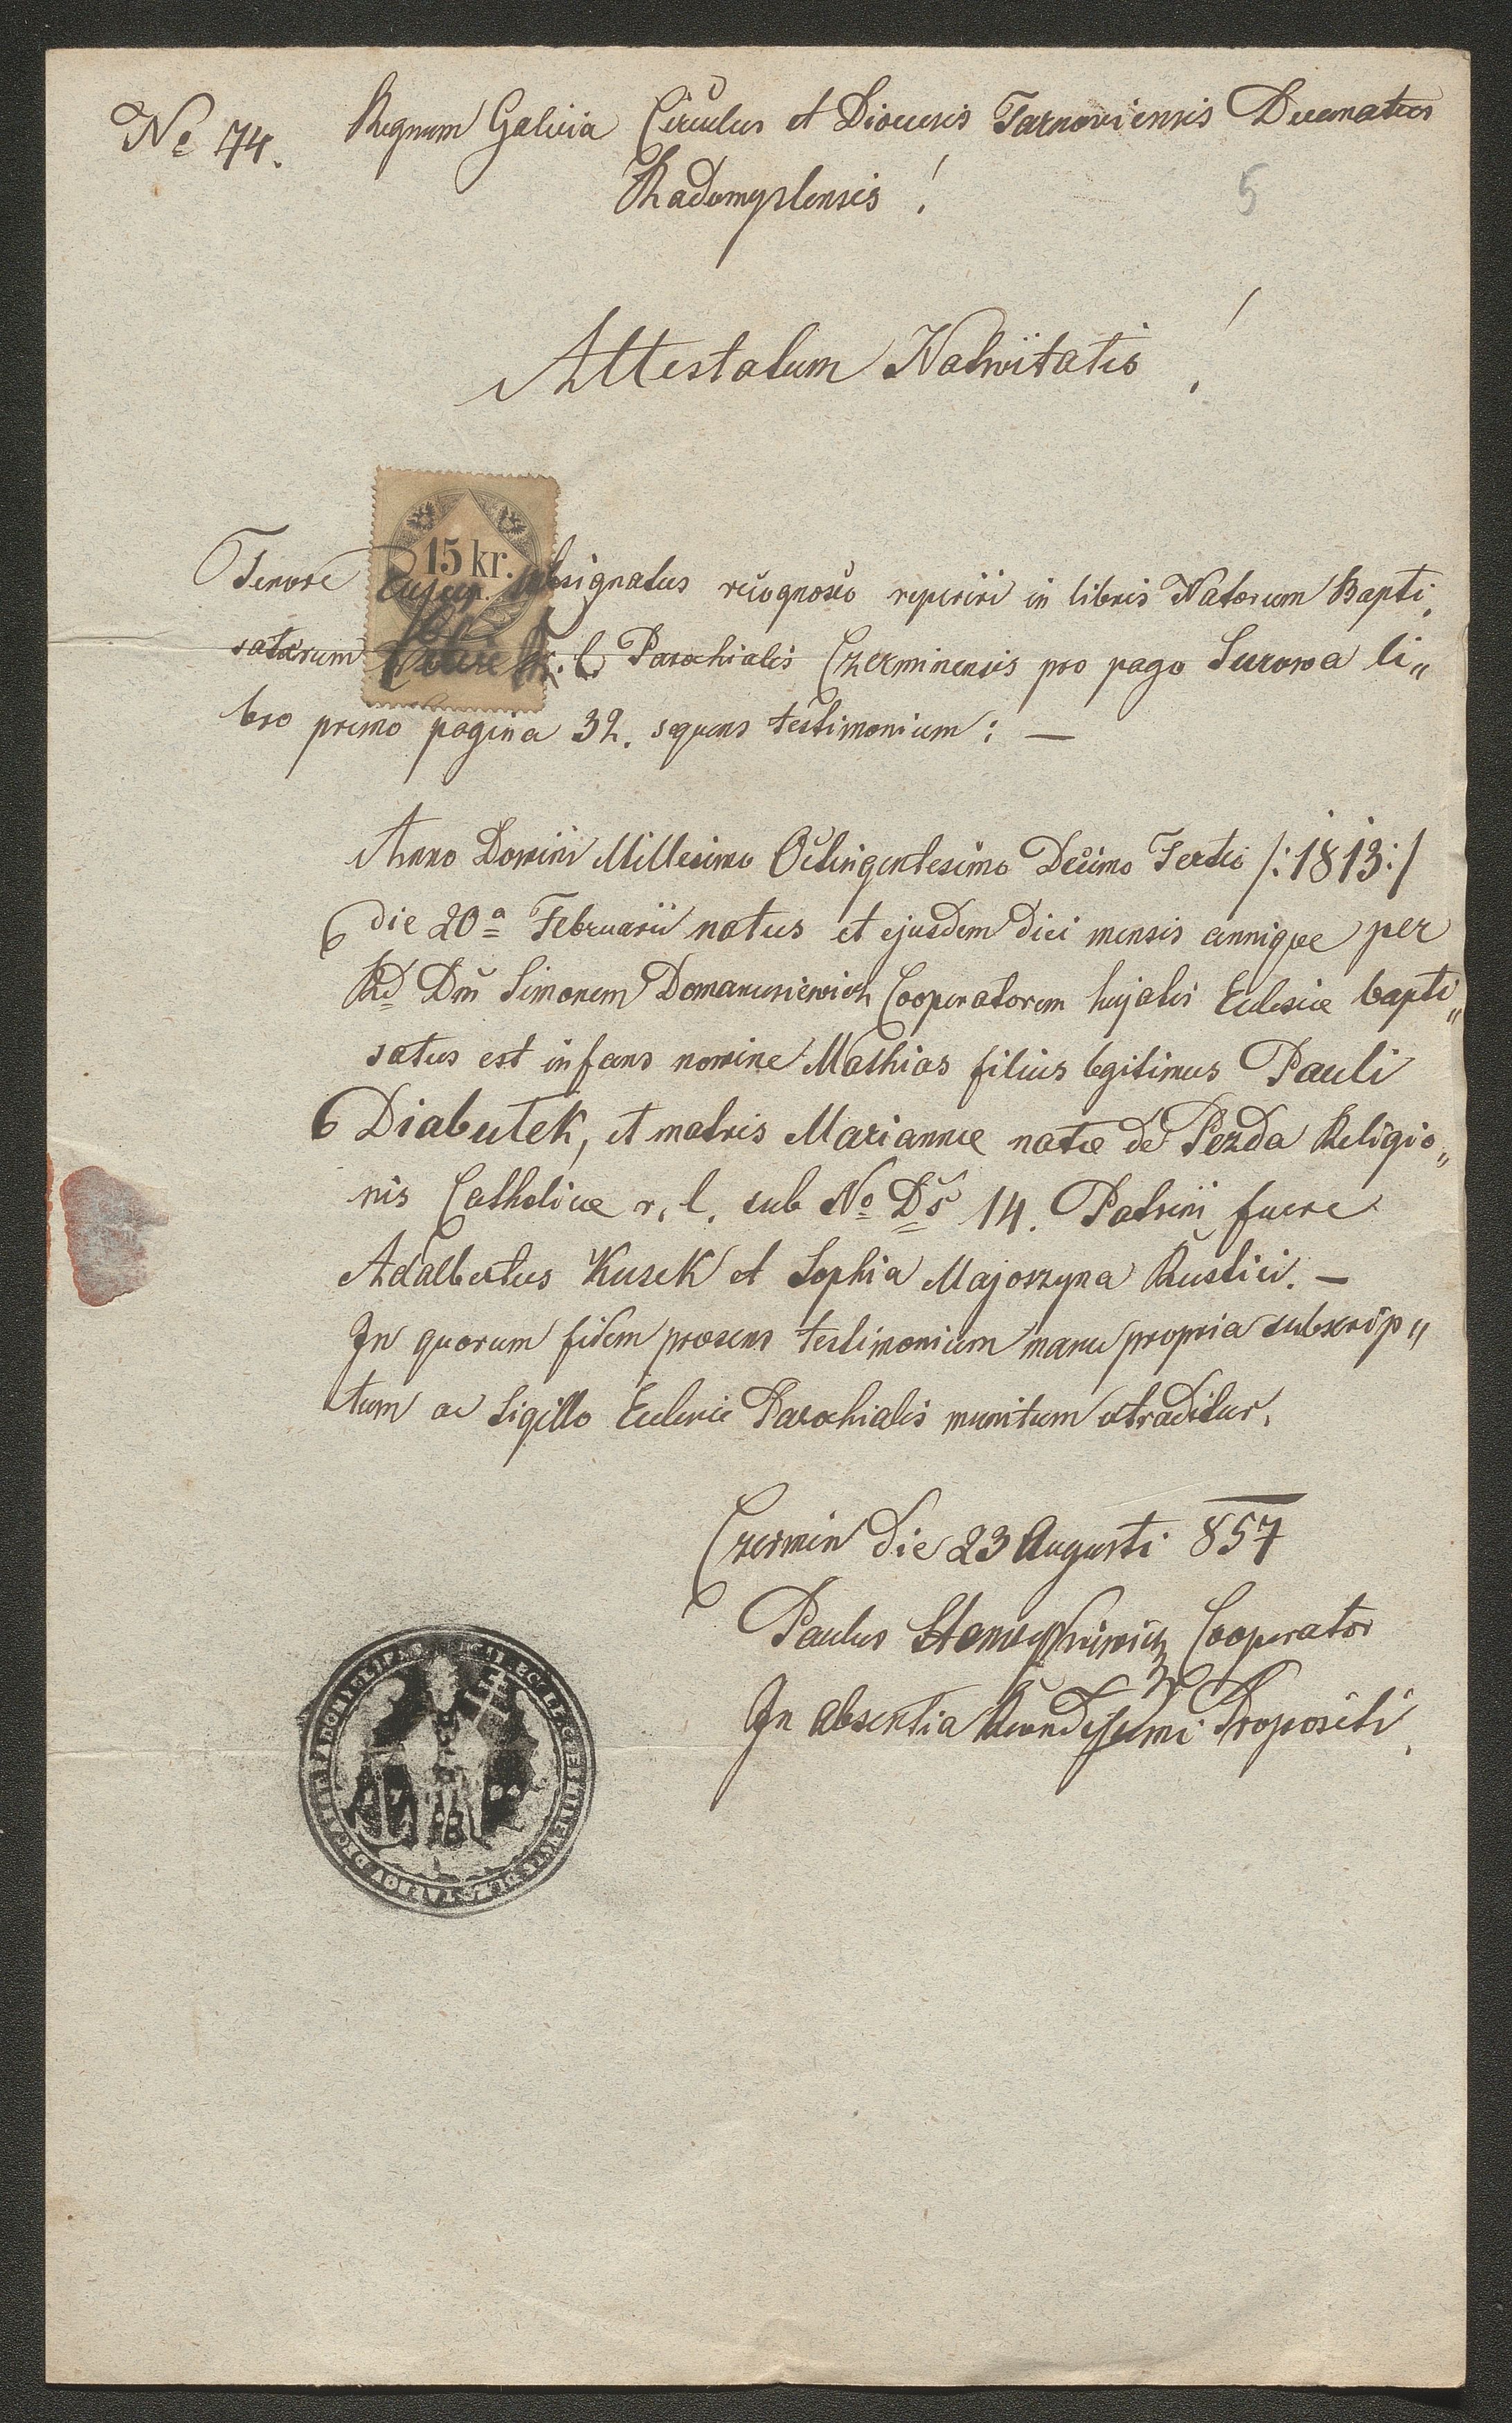 No 74. Regnum Galicia Circulus et Diocesis Tarnoviensis Decanatus
Radomyslensis!
5
Attestatum Nativitatis!
15 kr.
Tenore cujus subsignatus recognosco reperiri in libris Natorum Bapti
satorum r. l. Parochialis Czerminensis pro pago Surowa li„
bro primo pagina 32. sequens testimonium: —
Anno Domini Millesimo Octingentesimo Decimo Tertio /:1813:/
die 20a Februarii natus et ejusdem diei mensis annique per
Rd Dm Simonem Domanusiewicz Cooperatorem hujatis Eclesiae bapti„
satus est infans nomine Mathias filius legitimus Pauli
Diabutek, et matris Mariannae natae de Pezda Religio„
nis Catholicae r. l. sub No Ds 14. Patrini fuere
Adalbertus Kusek et Sophia Majoszyna Rustici. —
In quorum fidem praesens testimonium manu propria subscrip„
tum ac Sigillo Eclesiae Parochialis munitum extraditur.
Czermin die 23 Augusti 857
Paulus Cooperator
In absentia Prepositi.